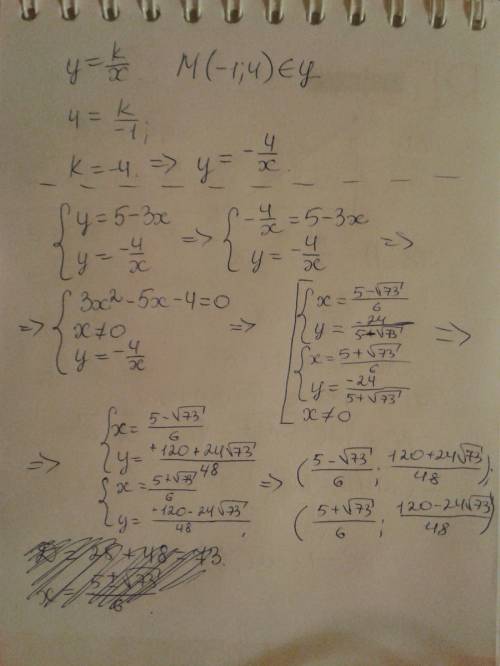 y = k/x    M(-1; 4) ∈ y
4 = k/-1;
k = -4. => y = -4/x.
{ y = 5-3x  y = -4/x => { -4/x = 5-3x  y = -4/x =>
=> { 3x² - 5x - 4 = 0  x ≠ 0  y = -4/x => [ { x = (5-√73)/6  y = -24/(5-√73)  { x = (5+√73)/6  y = -24/(5+√73)  x ≠ 0 =>
=> { x = (5-√73)/6  y = (+120+24√73)/48  { x = (5+√73)/6  y = (-120-24√73)/48; => ((5-√73)/6; (120+24√73)/48);
((5+√73)/6; (120-24√73)/48)